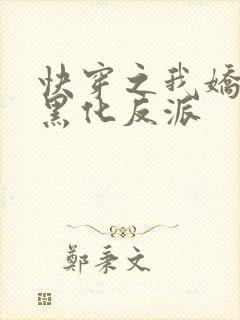 快穿之我嬌
黑化反派
鄭秉文